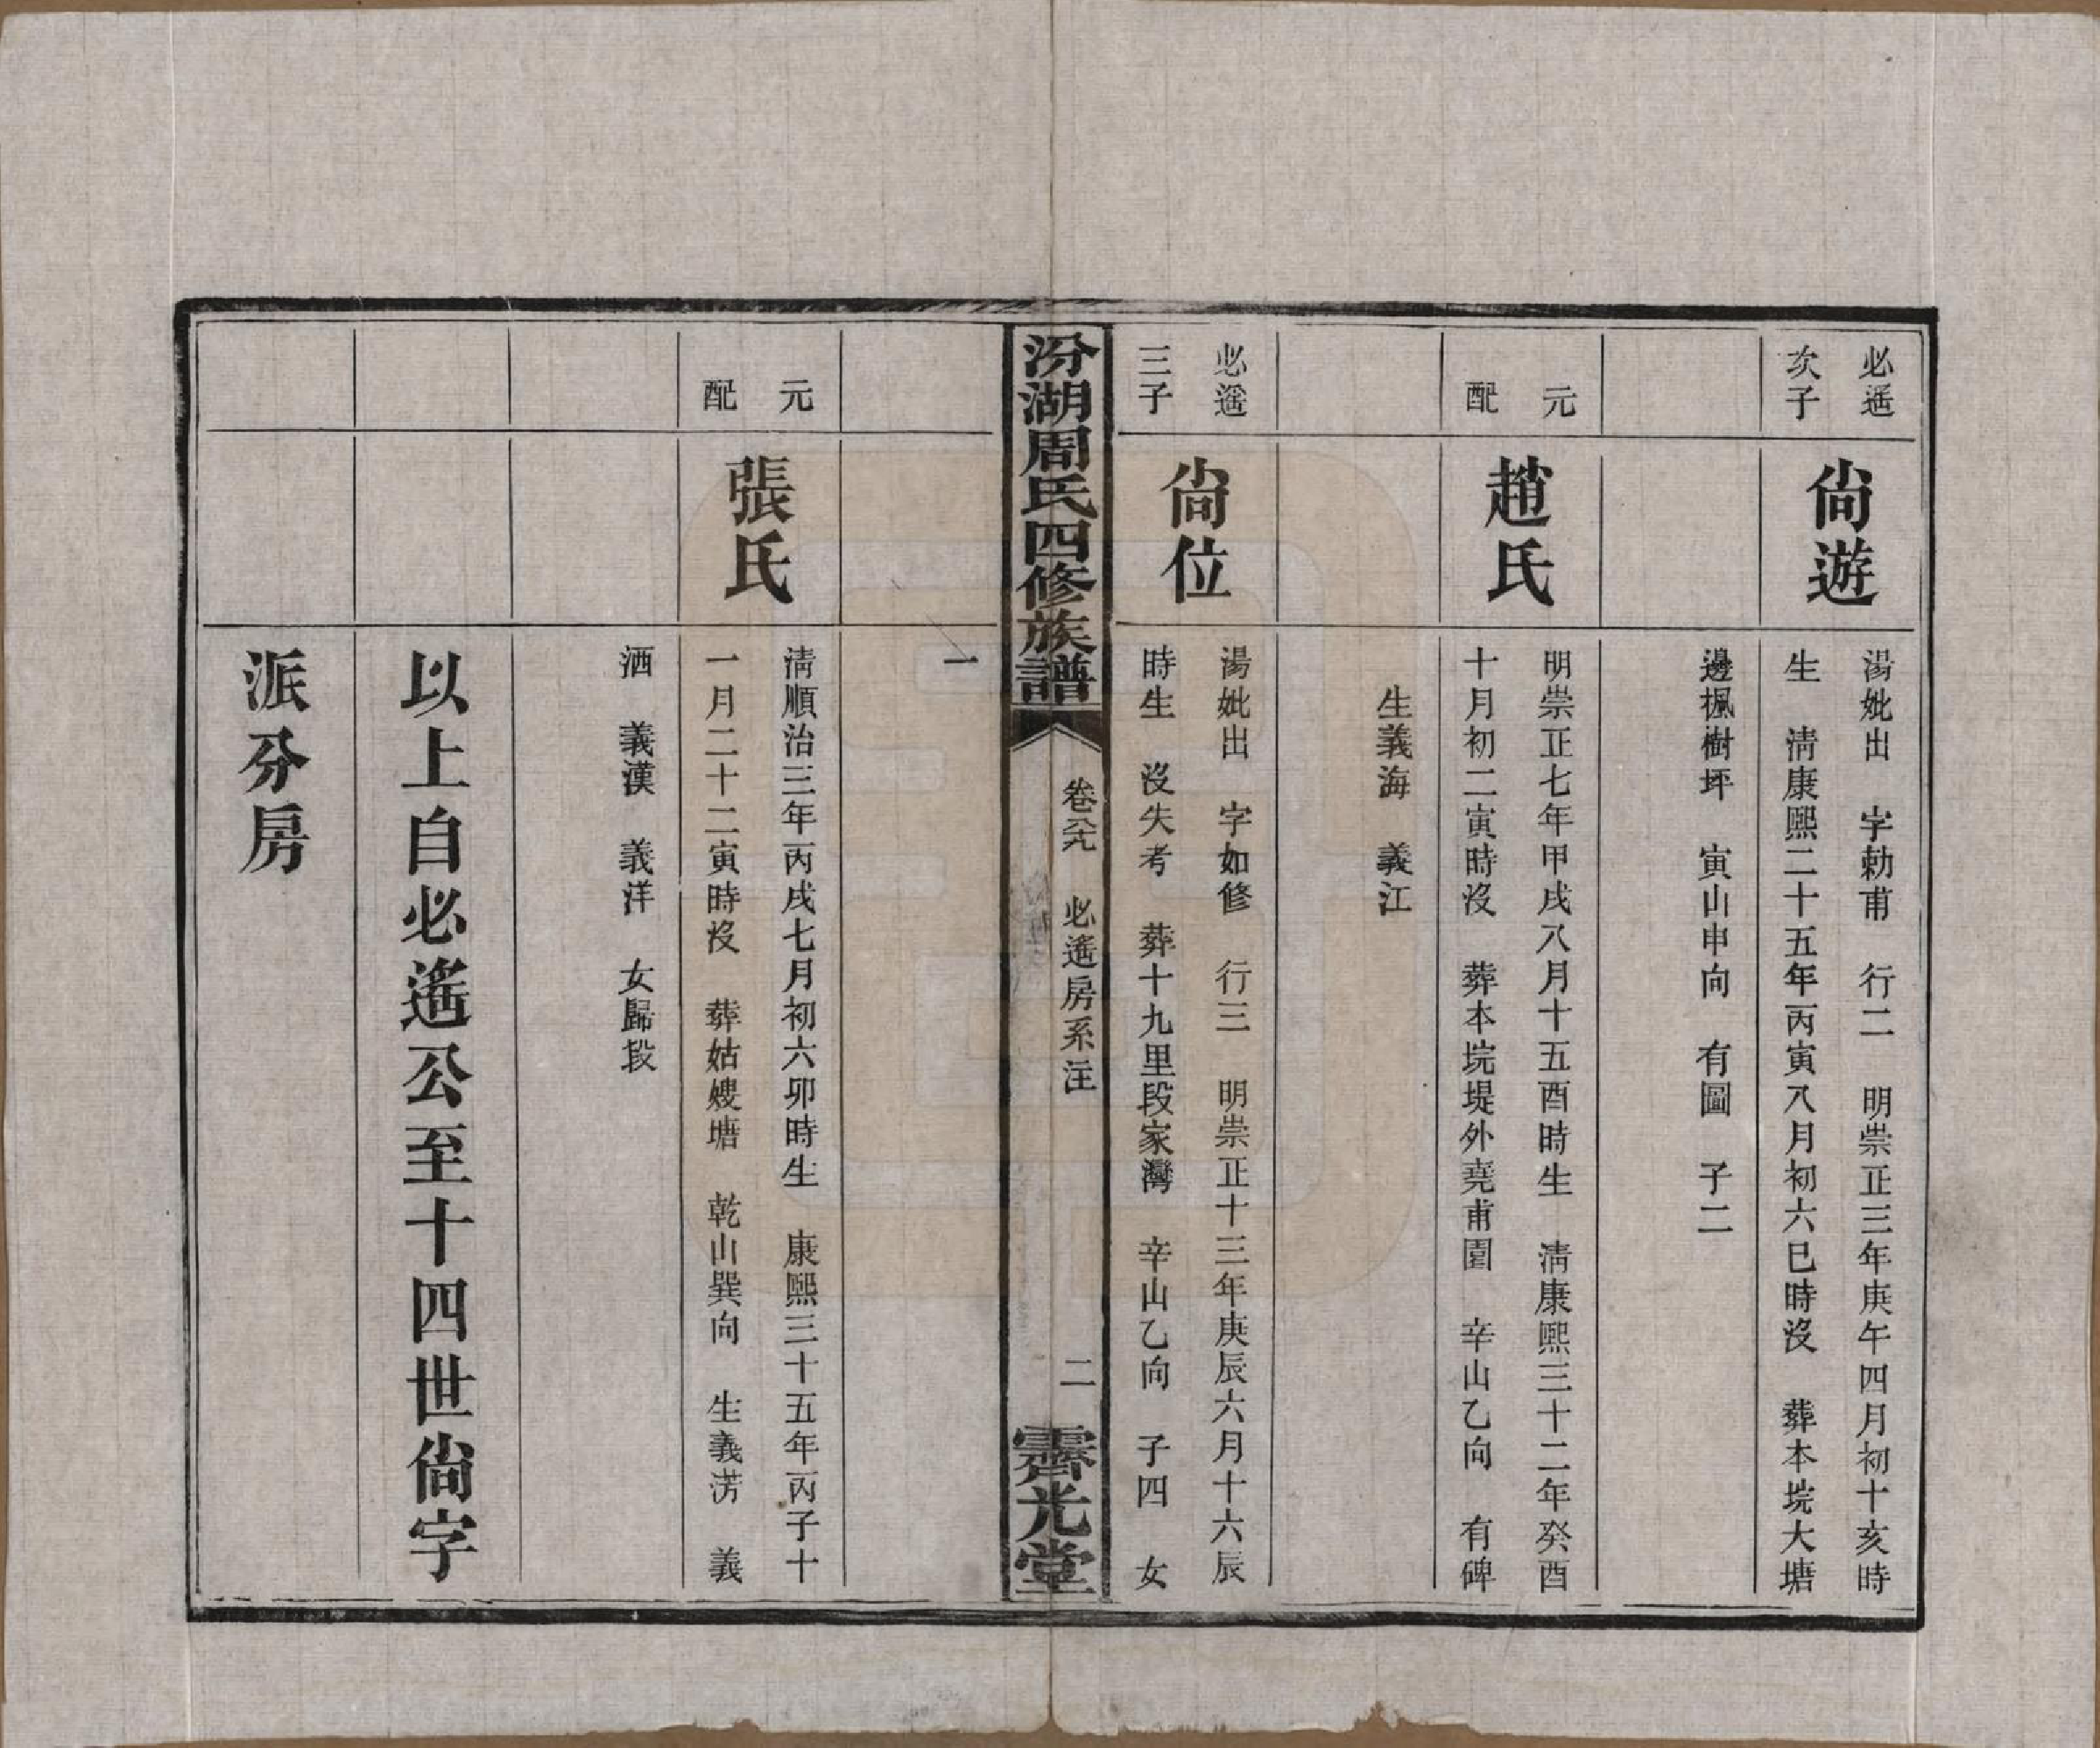 必遙
次子
尙遊
湯妣出　字勅甫　行二　明崇正三年庚午四月初十亥時
生　淸康熙二十五年丙寅八月初六巳時沒　葬本垸大塘
邊楓樹坪　寅山申向　有圖　子二
元
配
趙氏
明崇正七年甲戌八月十五酉時生　淸康熙三十二年癸酉
十月初二寅時沒　葬本垸堤外堯甫園　辛山乙向　有碑
生義海　義江
必遙
三子
尙位
湯妣出　字如修　行三　明崇正十三年庚辰六月十六辰
時生　沒失考　葬十九里段家灣　辛山乙向　子四　女
汾湖周氏四修族譜
卷六　必遙房系注
二
霽光堂
一
元
配
張氏
淸順治三年丙戌七月初六卯時生　康熙三十五年丙子十
一月二十二寅時沒　葬姑嫂塘　乾山巽向　生義涝　義
洒　義漢　義洋　女歸段
以上自必遙公至十四世尙字
派分房